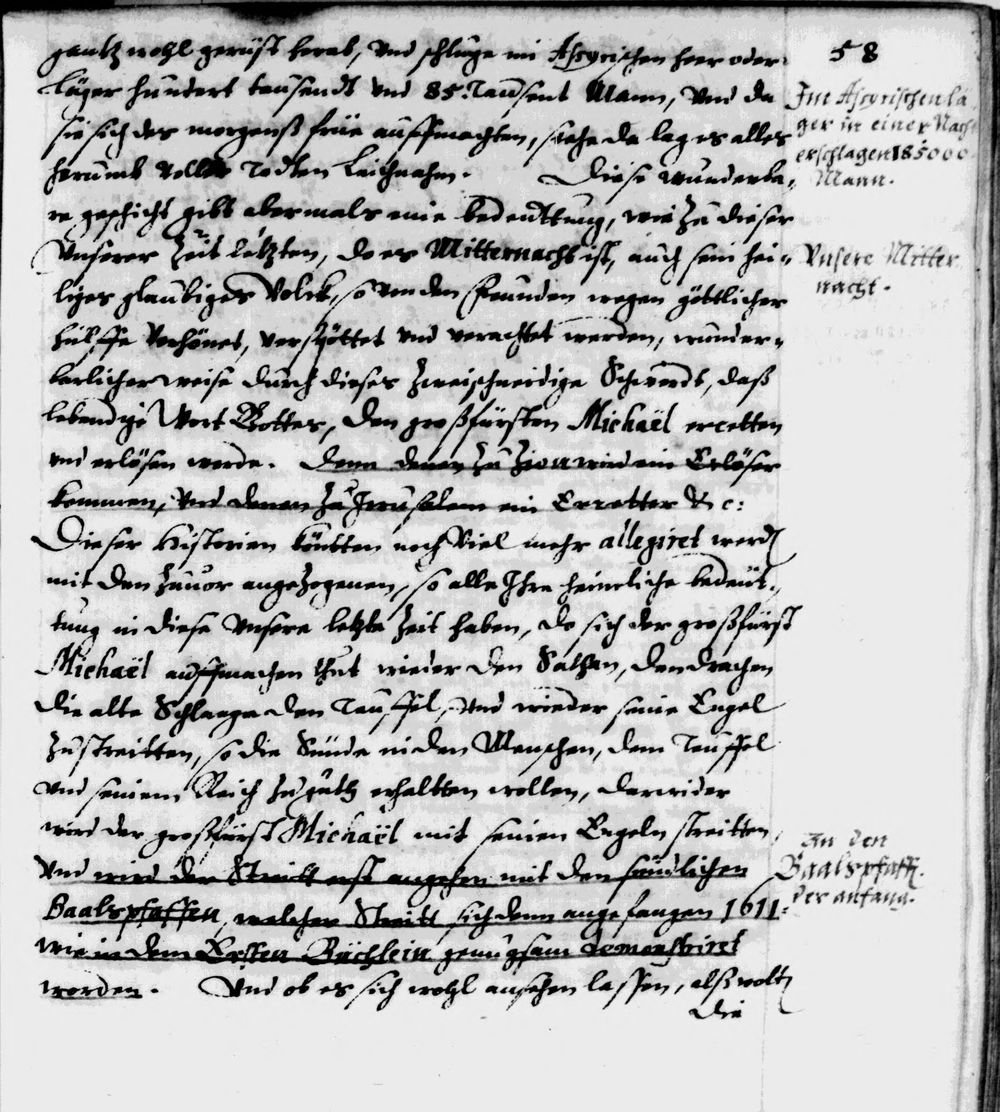 58
gantz wohl gerüst herab, und schluge im Assyrischen heer oder
läger hundert tausendt und 85. Tausent Mann, Und da
sie sich des morgenß früe auffmachten, siehe da lag es alles
herumb voller Todten Leichnahm. Diese wunderba-
re geschicht gibt abermals eine bedeuttung, wie zu dieser
Unserer Zeit letzten, do es Mitternacht ist, auch sein hei-
liges glaubiges Volck, so von den Feinden wegen göttlicher
hülffe verhönet, verspottet und verachtet werden, wunder-
barlicher weise durch dieses Zweischneidige Schwerdt, daß
lebendige Wort Gottes, den großfürsten Michaël erretten
und erlösen werde. Denn denen zu Zion wird ein Erlöser
kommen, und denen zu Jerusalem ein Erretter &c:
Dieser Historien köntten noch viel mehr allegiret werdē
mit den zuvor angezogenen, so alle Ihre heimliche bedeut-
tung in diese Unsere letzte Zeit haben, do sich der großfürst
Michaël auffmachen thut wieder den Sathan, den drachen
die alte Schlange den Teuffel, Und wieder seine Engel
zustreitten, so die Sünde in den Menschen, dem Teuffel
und seinem Reich zu gutt erhaltten wollen, darwider
wird der großfürst Michaël mit seinen Engeln streitten
Und wird der Streitt erst angehen mit den sündlichen
Baalspfaffen, welcher Streitt sich denn angefangen 1611.
wie in dem Ersten Büchlein genugsam demonstriret
worden. Und ob es sich wohl ansehen lassen, alß woltē
die
Im Assyrischen lä
ger in einer Nacht
erschlagen 185000
Mann.
Unsere Mitter
nacht.
An den
Baalspfaffē
der anfang.